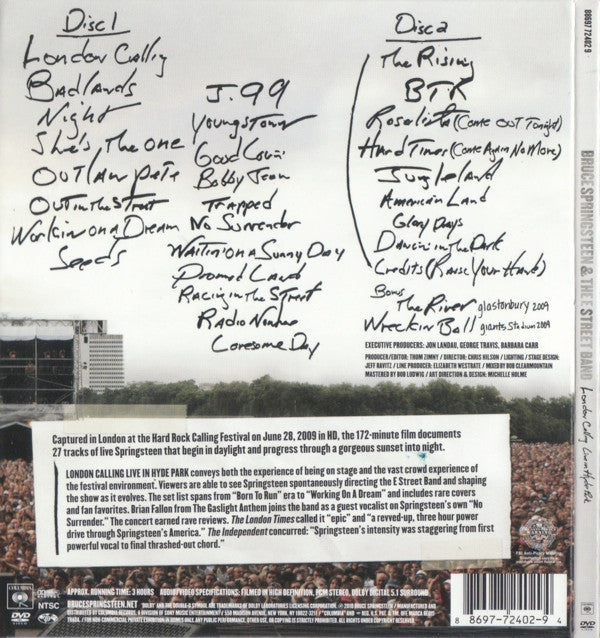 Disc 1
London Calling
Badlands
Night
She's The One
Outlaw Pete
Out in the Street
Workin on a Dream
Seeds
J. 99
Youngstown
Good Lovin
Bobby Jean
Trapped
No Surrender
Waitin' on a Sunny Day
Promed Land
Racing in the Street
Radio Nowhere
Lonesome Day
Disc 2
The Rising
BTR
Rosalita (Come Out Tonight)
Hard Times (Come Again No More)
Jungleland
American Land
Glory Days
Dancin' in the Dark
Credits (Raise Your Hand)
Bonus
The River glastonbury 2009
Wreckin Ball giants Stadium 2009
EXECUTIVE PRODUCERS: JON LANDAU, GEORGE TRAVIS, BARBARA CARR
PRODUCER/EDITOR: THOM ZIMNY / DIRECTOR: CHRIS HILSON / LIGHTING / STAGE DESIGN:
JEFF RAVITZ / LINE PRODUCER: ELIZABETH WESTRATE / MIXED BY BOB CLEARMOUNTAIN
MASTERED BY BOB LUDWIG / ART DIRECTION & DESIGN: MICHELLE HOLME
Captured in London at the Hard Rock Calling Festival on June 28, 2009 in HD, the 172-minute film documents
27 tracks of live Springsteen that begin in daylight and progress through a gorgeous sunset into night.
LONDON CALLING LIVE IN HYDE PARK conveys both the experience of being on stage and the vast crowd experience of
the festival environment. Viewers are able to see Springsteen spontaneously directing the E Street Band and shaping
the show as it evolves. The set list spans from "Born To Run" era to "Working On A Dream" and includes rare covers
and fan favorites. Brian Fallon from The Gaslight Anthem joins the band as a guest vocalist on Springsteen's own "No
Surrender." The concert earned rave reviews. The London Times called it "epic" and "a revved-up, three hour power
drive through Springsteen's America." The Independent concurred: "Springsteen's intensity was staggering from first
powerful vocal to final thrashed-out chord."
COLUMBIA
DVD
NTSC
APPROX. RUNNING TIME: 3 HOURS AUDIO/VIDEO SPECIFICATIONS: FILMED IN HIGH DEFINITION, PCM STEREO, DOLBY DIGITAL 5.1 SURROUND
BRUCESPRINGSTEEN.NET
8 8697-72402-9 4
88697 72402 9
BRUCE SPRINGSTEEN & THE E STREET BAND London Calling Live in Hyde Park
DVD